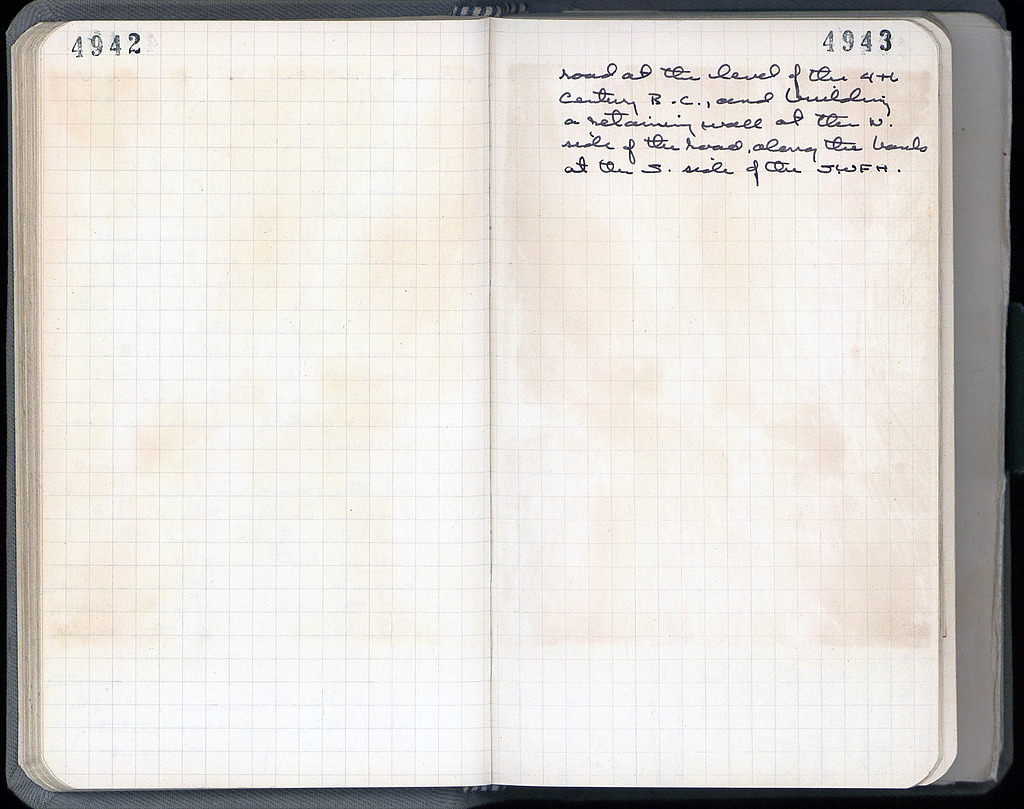 4942
4943
road at the level of the 4th
Century B.C., and building
a retaining wall at the N.
side of the road, along the
at the S. side of the SWFH.